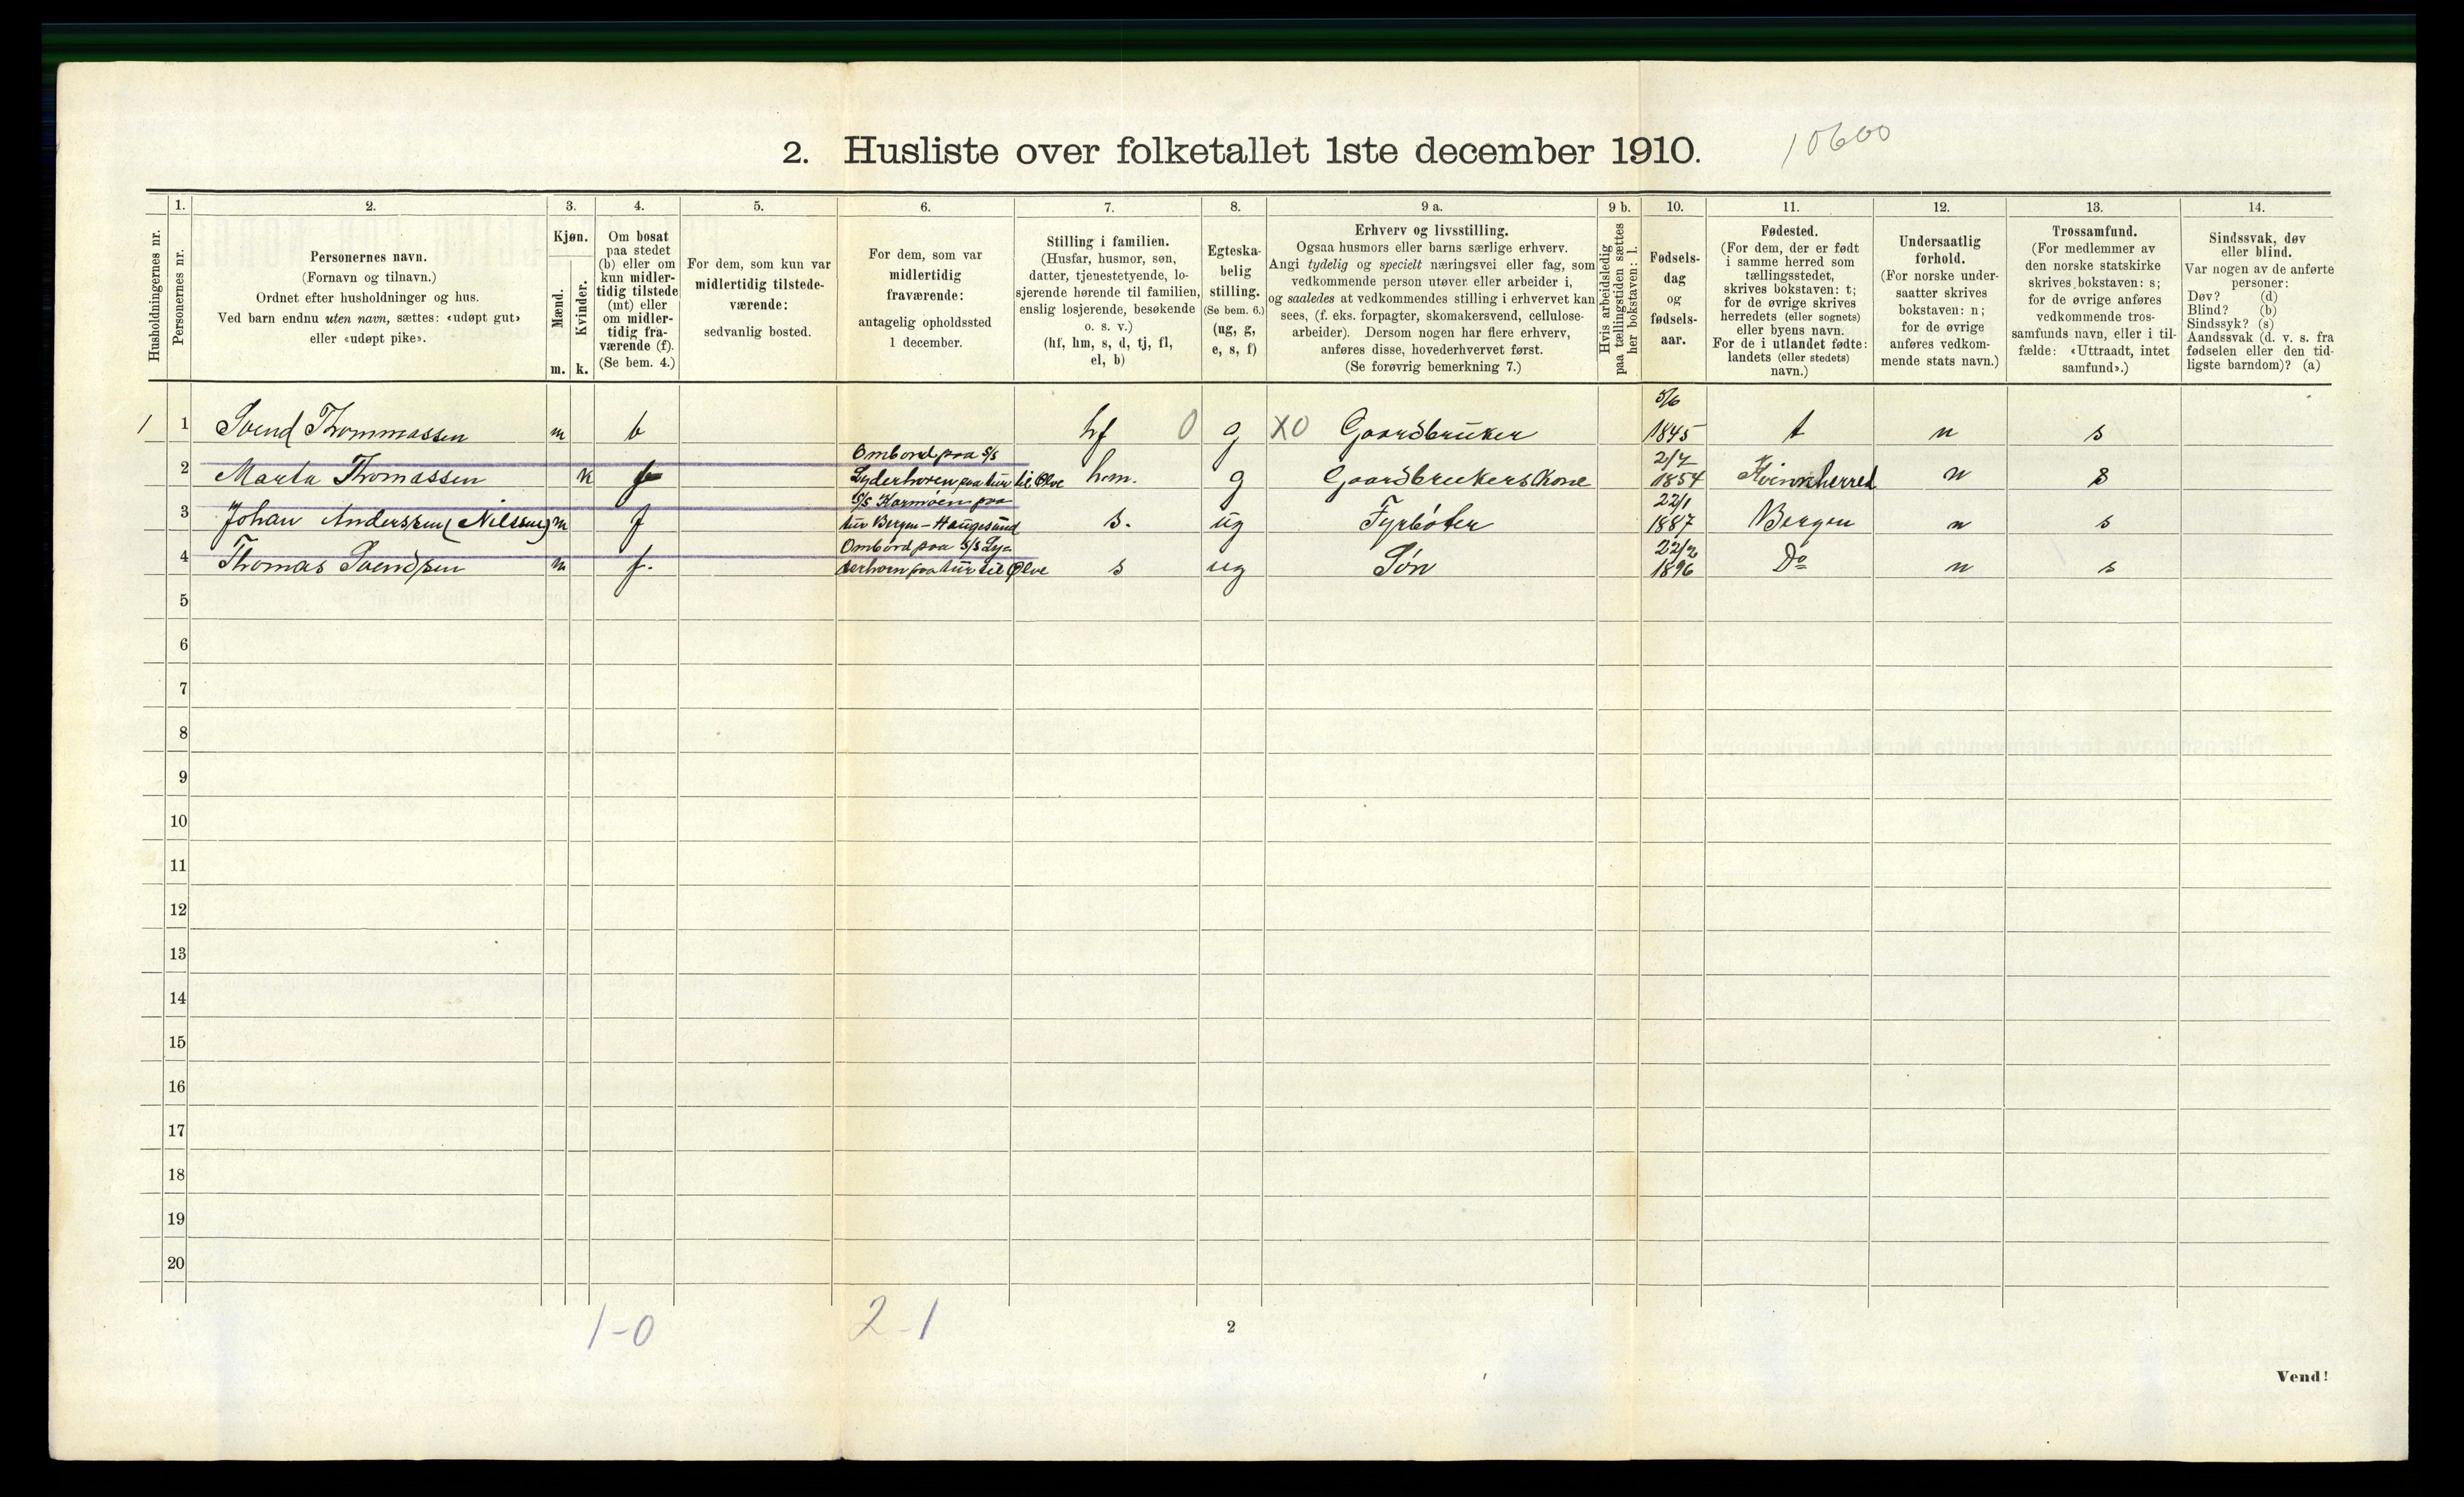 2. Husliste over folketallet 1ste december 1910.
10600
Husholdningernes nr.
1.
Personernes nr.
2.
Personernes navn.
(Fornavn og tilnavn.)
Ordnet efter husholdninger og hus.
Ved barn endnu uten navn, sættes: «udøpt gut»
eller «udøpt pike».
3.
Kjøn.
Mænd.
Kvinder.
m. k.
4.
Om bosat
paa stedet
(b) eller om
kun midler-
tidig tilstede
(mt) eller
om midler-
tidig fra-
værende (f).
(Se bem. 4.)
5.
For dem, som kun var
midlertidig tilstede-
værende:
sedvanlig bosted.
6.
For dem, som var
midlertidig
fraværende:
antagelig opholdssted
1 december.
7.
Stilling i familien.
(Husfar, husmor, søn,
datter, tjenestetyende, lo-
sjerende hørende til familien,
enslig losjerende, besøkende
o. s. v.)
(hf, hm, s, d, tj, fl,
el, b)
8.
Egteska-
belig
stilling.
(Se bem. 6.)
(ug, g,
e, s, f)
9 a.
Erhverv og livsstilling.
Ogsaa husmors eller barns særlige erhverv.
Angi tydelig og specielt næringsvei eller fag, som
vedkommende person utøver eller arbeider i,
og saaledes at vedkommendes stilling i erhvervet kan
sees, (f. eks. forpagter, skomakersvend, cellulose-
arbeider). Dersom nogen har flere erhverv,
anføres disse, hovederhvervet først.
(Se forøvrig bemerkning 7.)
9 b.
Hvis arbeidsledig
paa tællingstiden sættes
her bokstaven: l.
10.
Fødsels-
dag
og
fødsels-
aar.
11.
Fødested.
(For dem, der er født
i samme herred som
tællingsstedet,
skrives bokstaven: t;
for de øvrige skrives
herredets (eller sognets)
eller byens navn.
For de i utlandet fødte:
landets (eller stedets)
navn.)
12.
Undersaatlig
forhold.
(For norske under-
saatter skrives
bokstaven: n;
for de øvrige
anføres vedkom-
mende stats navn.)
13.
Trossamfund.
(For medlemmer av
den norske statskirke
skrives bokstaven: s;
for de øvrige anføres
vedkommende tros-
samfunds navn, eller i til-
fælde: «Uttraadt, intet
samfund».)
14.
Sindssvak, døv
eller blind.
Var nogen av de anførte
personer:
Døv? (d)
Blind? (b)
Sindssyk? (s)
Aandssvak (d. v. s. fra
fødselen eller den tid-
ligste barndom)? (a)
1 1 Svend Thommassen m b hf 0 g X0 Gaardbruker 5/6 1845 t n s
2 Marta Thomassen k f Ombord paa S/S Lyderhoren paa tur til Ølve hm. g Gaardbrukers Kone 2/7 1854 Kvinnherred n s
3 Johan Anderssen (Nilssen) m f S/S Karmøen paa tur Bergen-Haugesund s. ug Fyrbøter 22/1 1887 Bergen n s
4 Thomas Svendsen m f. Ombord paa S/S Ly= derhorn paa tur til Ølve s ug Søn 22/2 1896 Do n s
5
6
7
8
9
10
11
12
13
14
15
16
17
18
19
20
1-0
2-1
2
Vend!